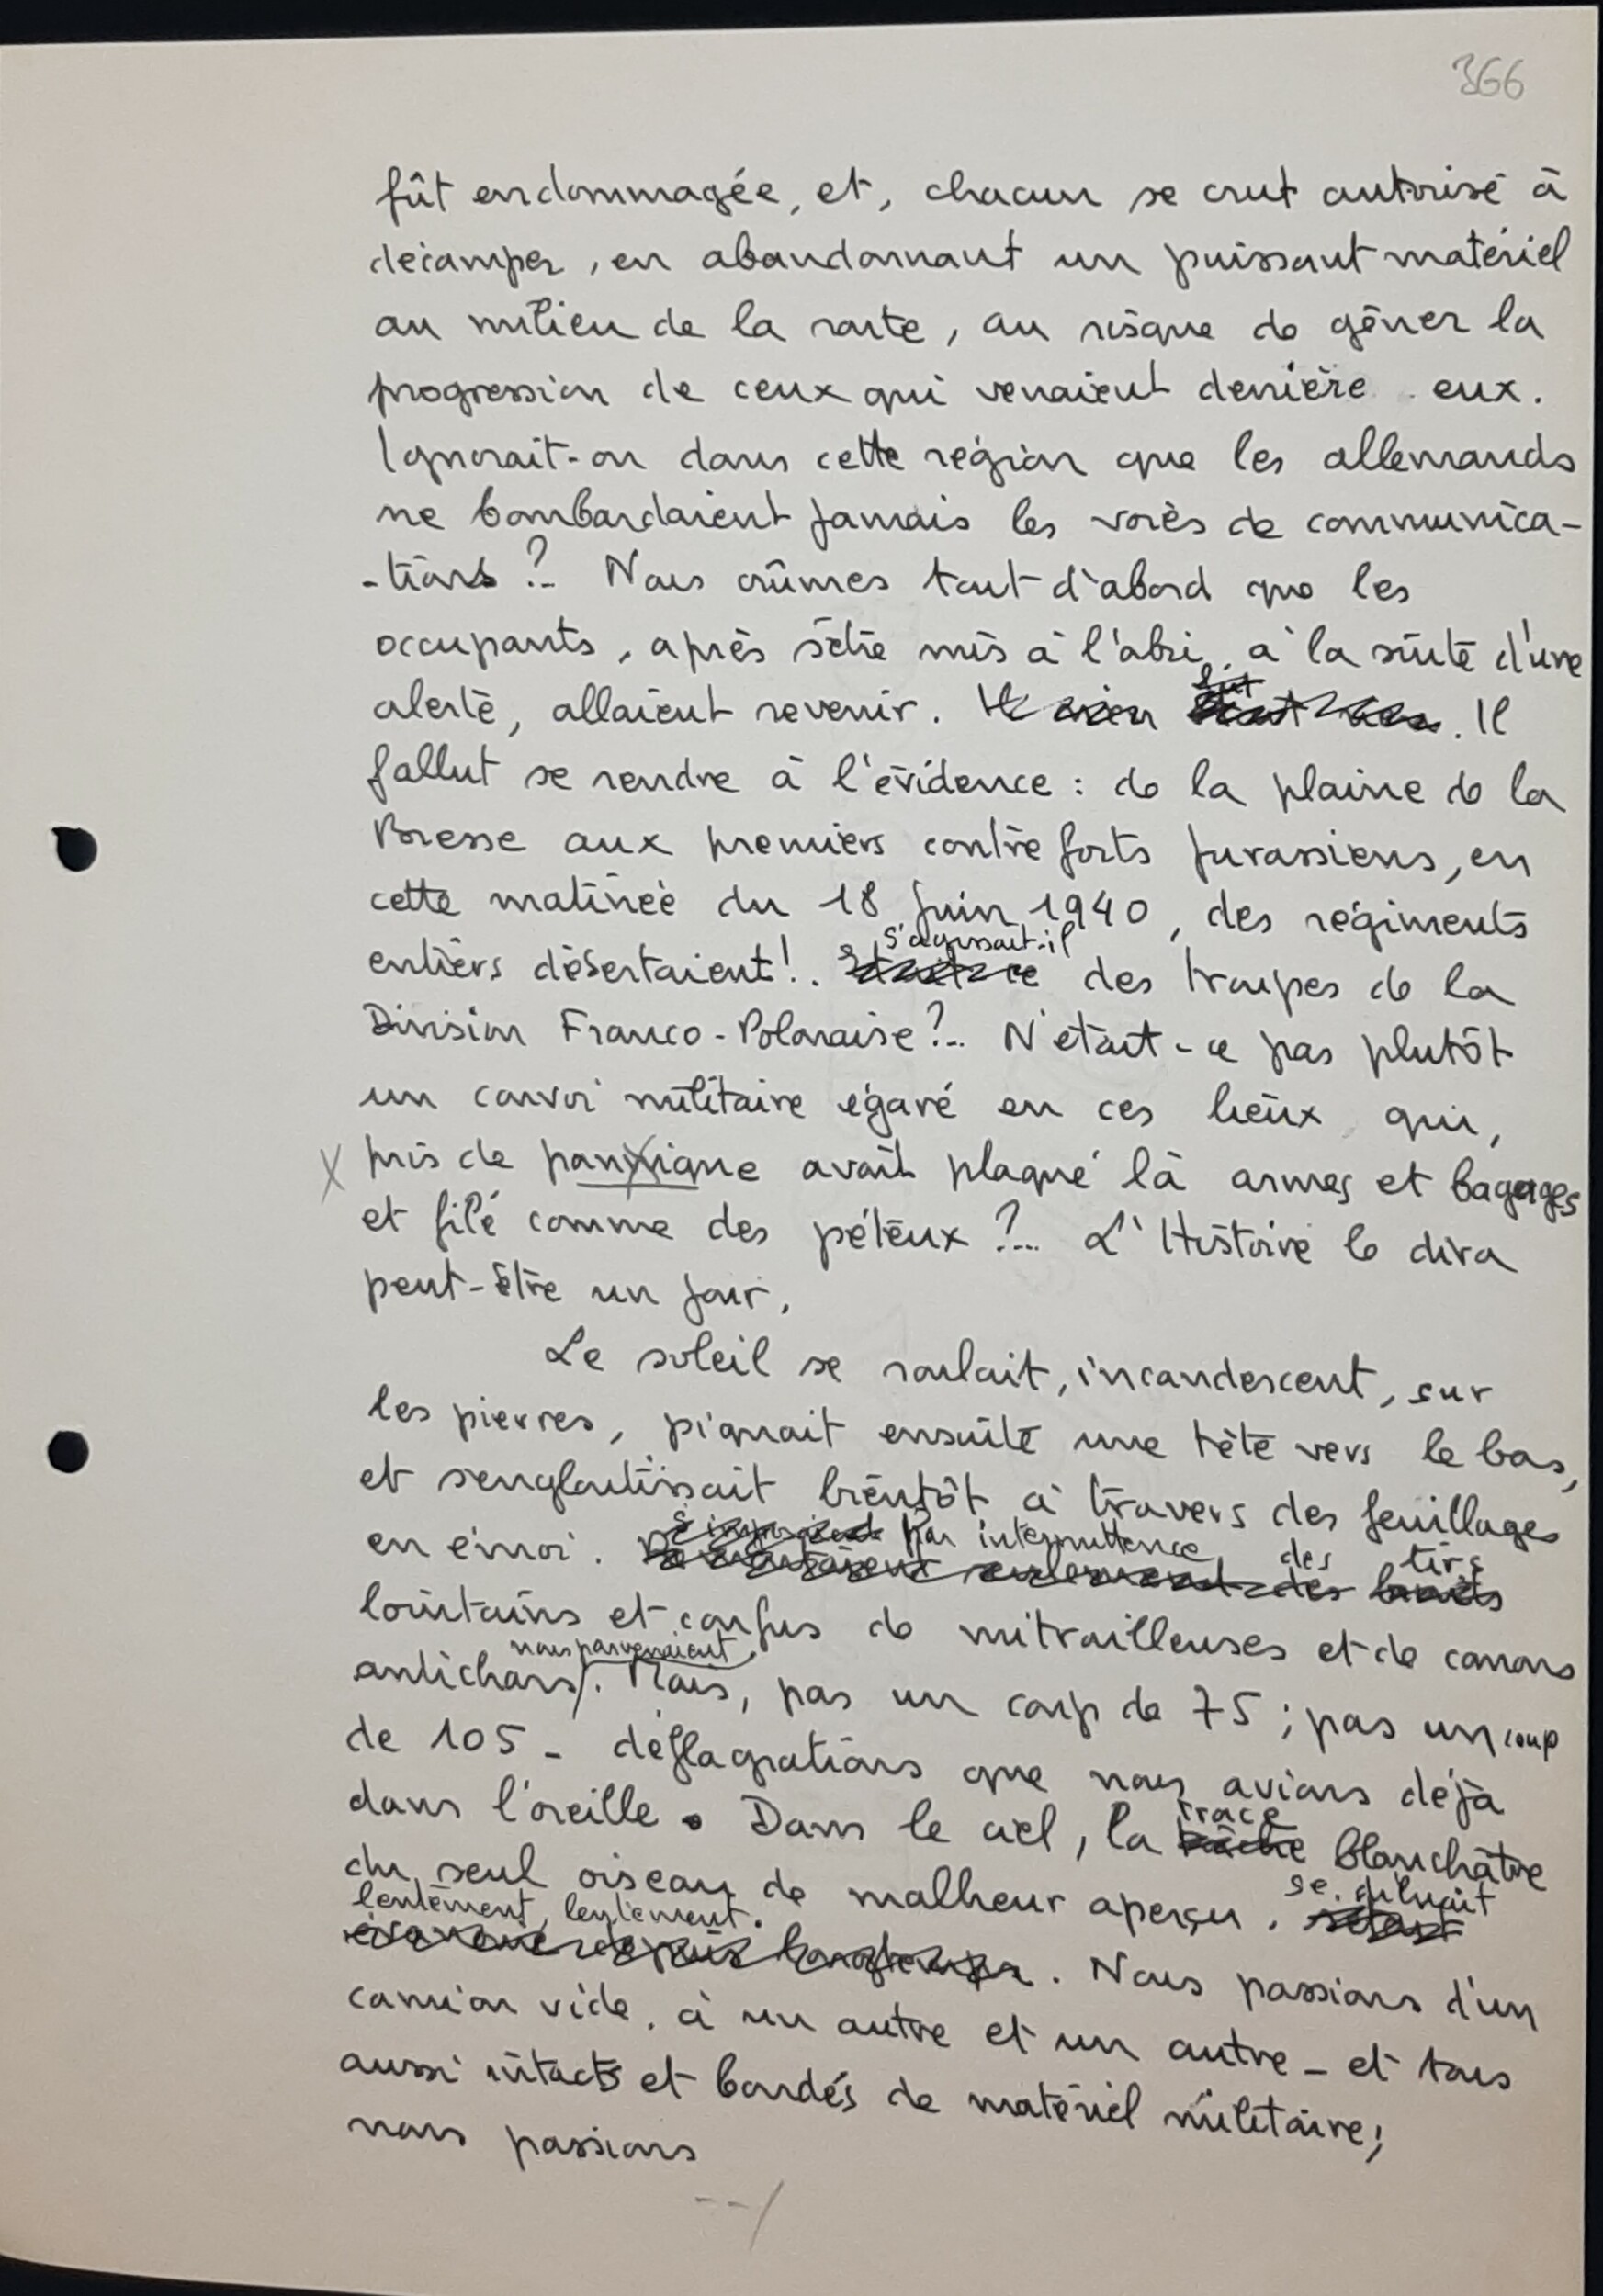 366
fût endommagée, et, chacun se crut autorisé à
décamper, en abandonnant un puissant matériel
au milieu de la route, au risque de gêner la
progression de ceux qui venaient derrière eux.
Ignorait-on dans cette région que les allemands
ne bombardaient jamais les voies de communica-
-tions ?.. Nous crûmes tout d'abord que les
occupants, après s'être mis à l'abri, à la suite d'une
alerte, allaient revenir. Il
fallut se rendre à l'évidence : de la plaine de la
Bresse aux premiers contreforts jurassiens, en
cette matinée du 18 juin 1940, des régiments
s'agissait-il
entiers désertaient !.. des troupes de la
Division Franco-Polonaise ?.. N'était-ce pas plutôt
un convoi militaire égaré en ces lieux qui,
X pris de panique avait plaqué là armes et bagages
et filé comme des péteux ?... L'Histoire le dira
peut-être un jour.
Le soleil se roulait, incandescent, sur
les pierres, piquait ensuite une tête vers le bas,
et s'engloutissait bientôt à travers des feuillages
par intermittence des tirs
en émoi. des bruits
lointains et confus de mitrailleuses et de canons
nous parvenaient
antichars. Mais, pas un coup de 75 ; pas un coup
de 105 - déflagrations que nous avions déjà
trace
dans l'oreille. Dans le ciel, la blanchâtre
se diluait
du seul oiseau de malheur aperçu,
lentement, lentement.
évanouie depuis longtemps. Nous passions d'un
camion vide, à un autre et un autre - et tous
aussi intacts et bondés de matériel militaire ;
nous passions
--/